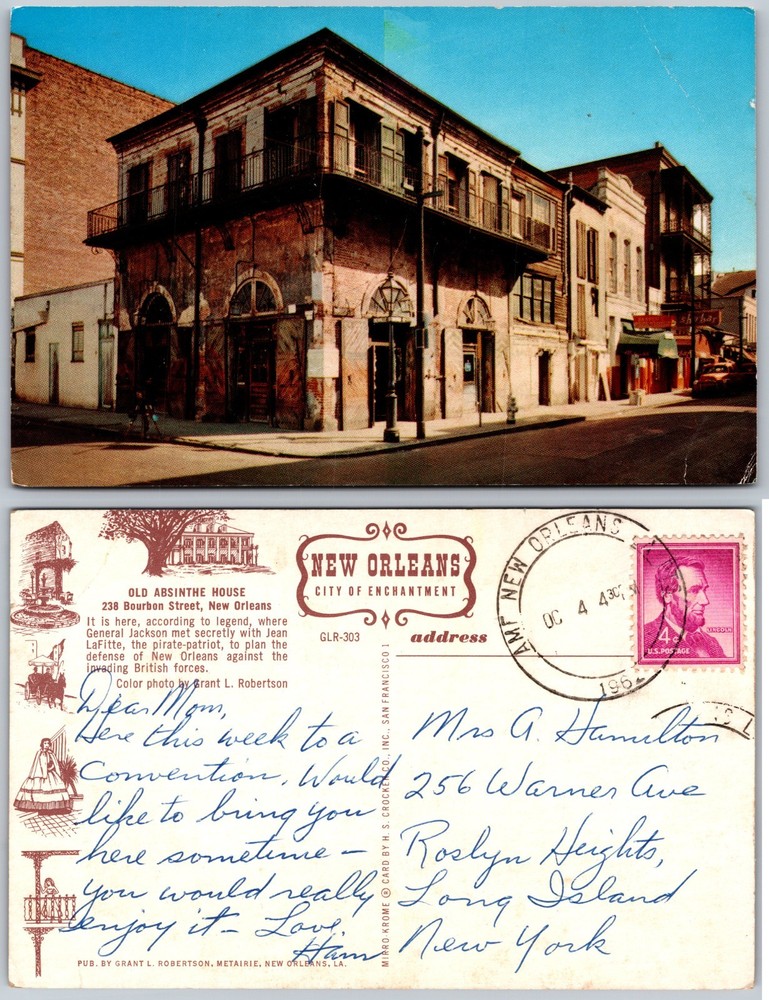 OLD ABSINTHE HOUSE
238 Bourbon Street, New Orleans
It is here, according to legend, where
General Jackson met secretly with Jean
LaFitte, the pirate-patriot, to plan the
defense of New Orleans against the
invading British forces.
Color photo by Grant L. Robertson
NEW ORLEANS
CITY OF ENCHANTMENT
GLR-303
address
NEW ORLEANS
OC 4 430
196
4¢
LINCOLN
U.S. POSTAGE
Dear Mom,
Here this week to a
Convention. Would
like to bring you
here sometime –
you would really
enjoy it – Love,
Ham
Mrs A. Hamilton
256 Warner Ave
Roslyn Heights,
Long Island
New York
MIRRO-KROME ® CARD BY H. S. CROCKER CO., INC., SAN FRANCISCO 1
PUB. BY GRANT L. ROBERTSON, METAIRIE, NEW ORLEANS, LA.